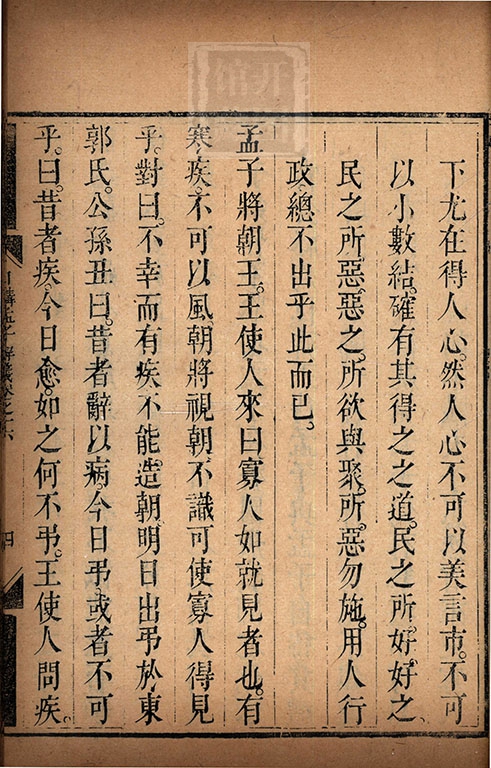 下尤在得人心。然人心不可以美言市。不可
以小數結。確有其得之之道。民之所好。好之。
民之所惡。惡之。所欲與聚。所惡勿施。用人行
政。總不出乎此而已。
孟子將朝王。王使人來曰寡人如就見者也。有
寒疾。不可以風。朝將視朝不識可使寡人得見
乎。對曰。不幸而有疾不能造朝明日出弔於東
郭氏。公孫丑曰。昔者辭以病今日弔或者不可
乎。曰。昔者疾。今日愈。如之何不弔。王使人問疾。
日講
解義卷之
六
四